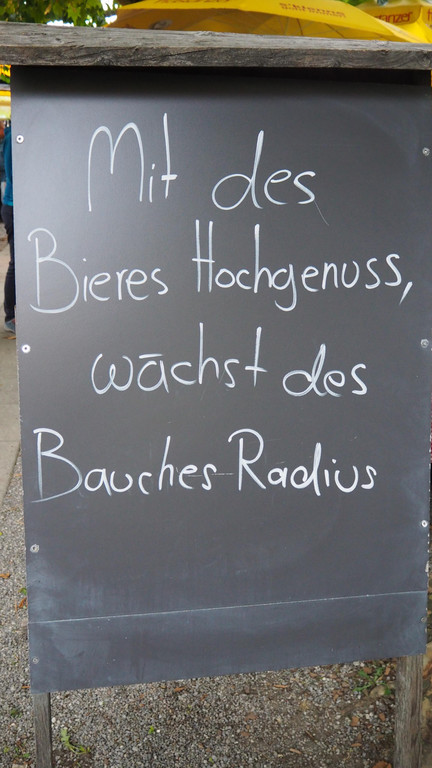 Mit des
Bieres Hochgenuss,
wāchst des
Bauches-Radius